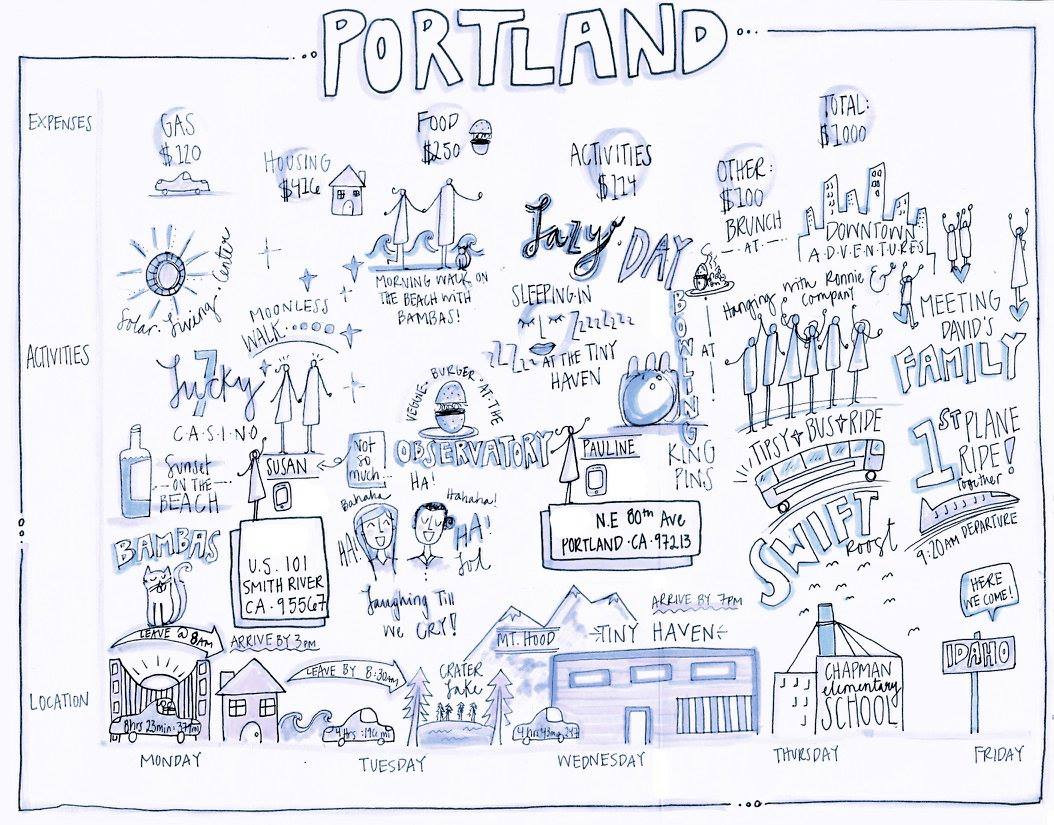 PORTLAND
EXPENSES
GAS
$120
HOUSING
$416
FOOD
$250
ACTIVITIES
$114
OTHER:
$100
TOTAL:
$1000
ACTIVITIES
Solar. Living. Center
Lucky
7
CASINO
Sunset
ON THE
BEACH
BAMBAS
MOONLESS
WALK
SUSAN
NOT
SO
MUCH...
U.S. 101
SMITH RIVER
CA · 95567
MORNING WALK ON
THE BEACH WITH
BAMBAS!
VEGGIE · BURGER · AT · THE
OBSERVATORY
HA!
Bahaha
Hahaha!
HA!
HA!
Lol
Laughing Till
We CRY!
Lazy DAY
SLEEPING·IN
ZZZZZZZ
ZZZZZ
AT THE TINY
HAVEN
BOWLING
AT
KING
PINS
PAULINE
N.E 80th Ave
PORTLAND · CA · 97213
BRUNCH
AT
DOWNTOWN
A·D·V·E·N·T·U·R·E·S
Hanging with Ronnie &
company
TIPSY BUS RIDE
SWIFT
Roost
MEETING
DAVID'S
FAMILY
1ST PLANE
RIDE!
Together
9:20AM DEPARTURE
HERE
WE COME!
IDAHO
LOCATION
LEAVE @ 8AM
ARRIVE BY 3PM
LEAVE BY 8:30AM
CRATER
Lake
MT. HOOD
ARRIVE BY 7PM
TINY HAVEN
CHAPMAN
elementary
SCHOOL
MONDAY
TUESDAY
WEDNESDAY
THURSDAY
FRIDAY